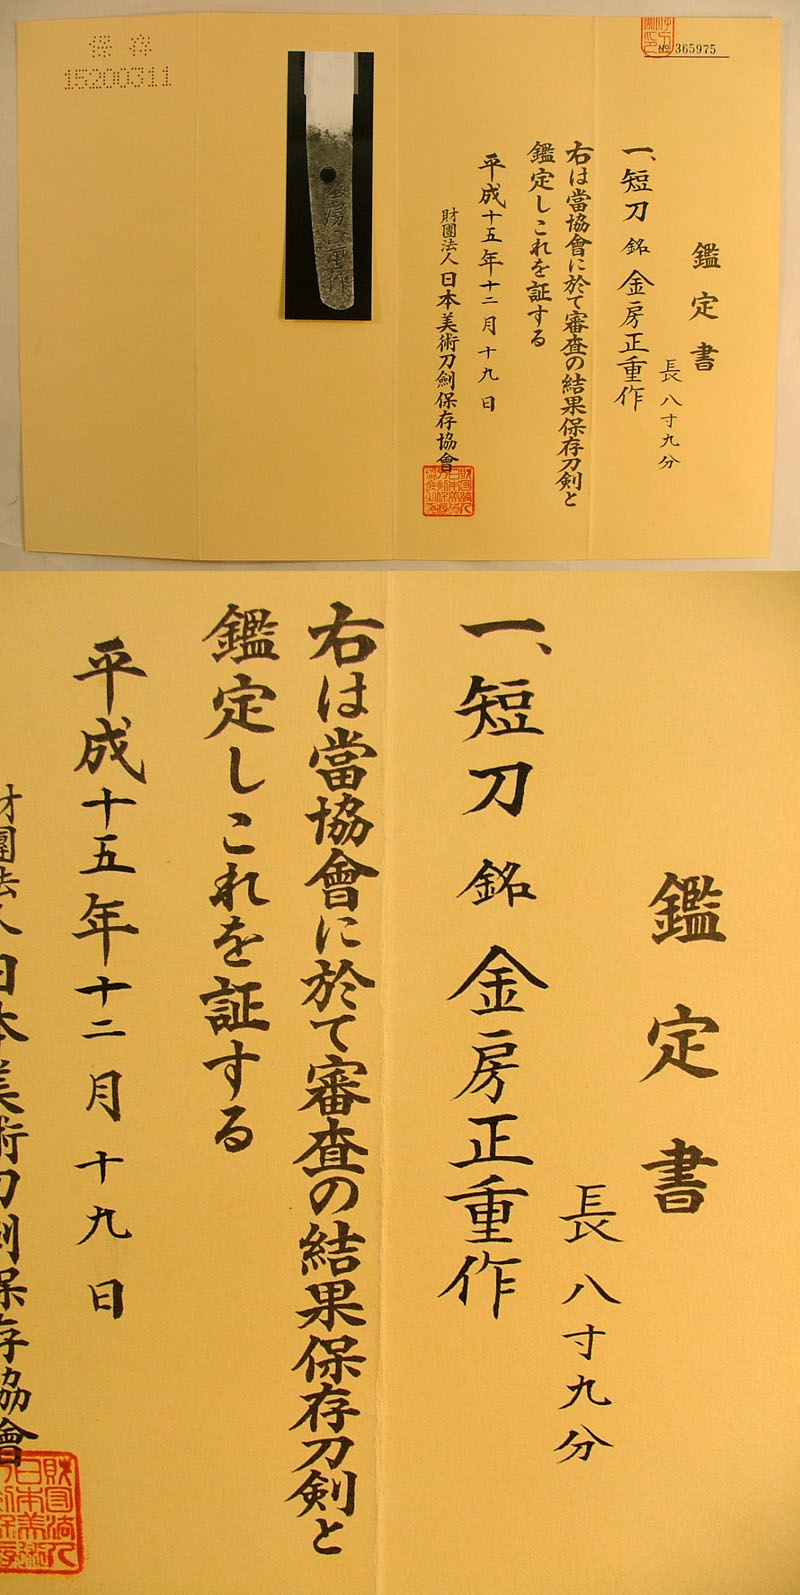 保存
15200311
№ 365975
鑑定書
長八寸九分
一、短刀 銘 金房正重作
右は當協會に於て審査の結果保存刀剣と
鑑定しこれを証する
平成十五年十二月十九日
財團法人日本美術刀劍保存協會
金房正重作
鑑定書
長八寸九分
一、短刀 銘 金房正重作
右は當協會に於て審査の結果保存刀剣と
鑑定しこれを証する
平成十五年十二月十九日
財團法人日本美術刀劍保存協會